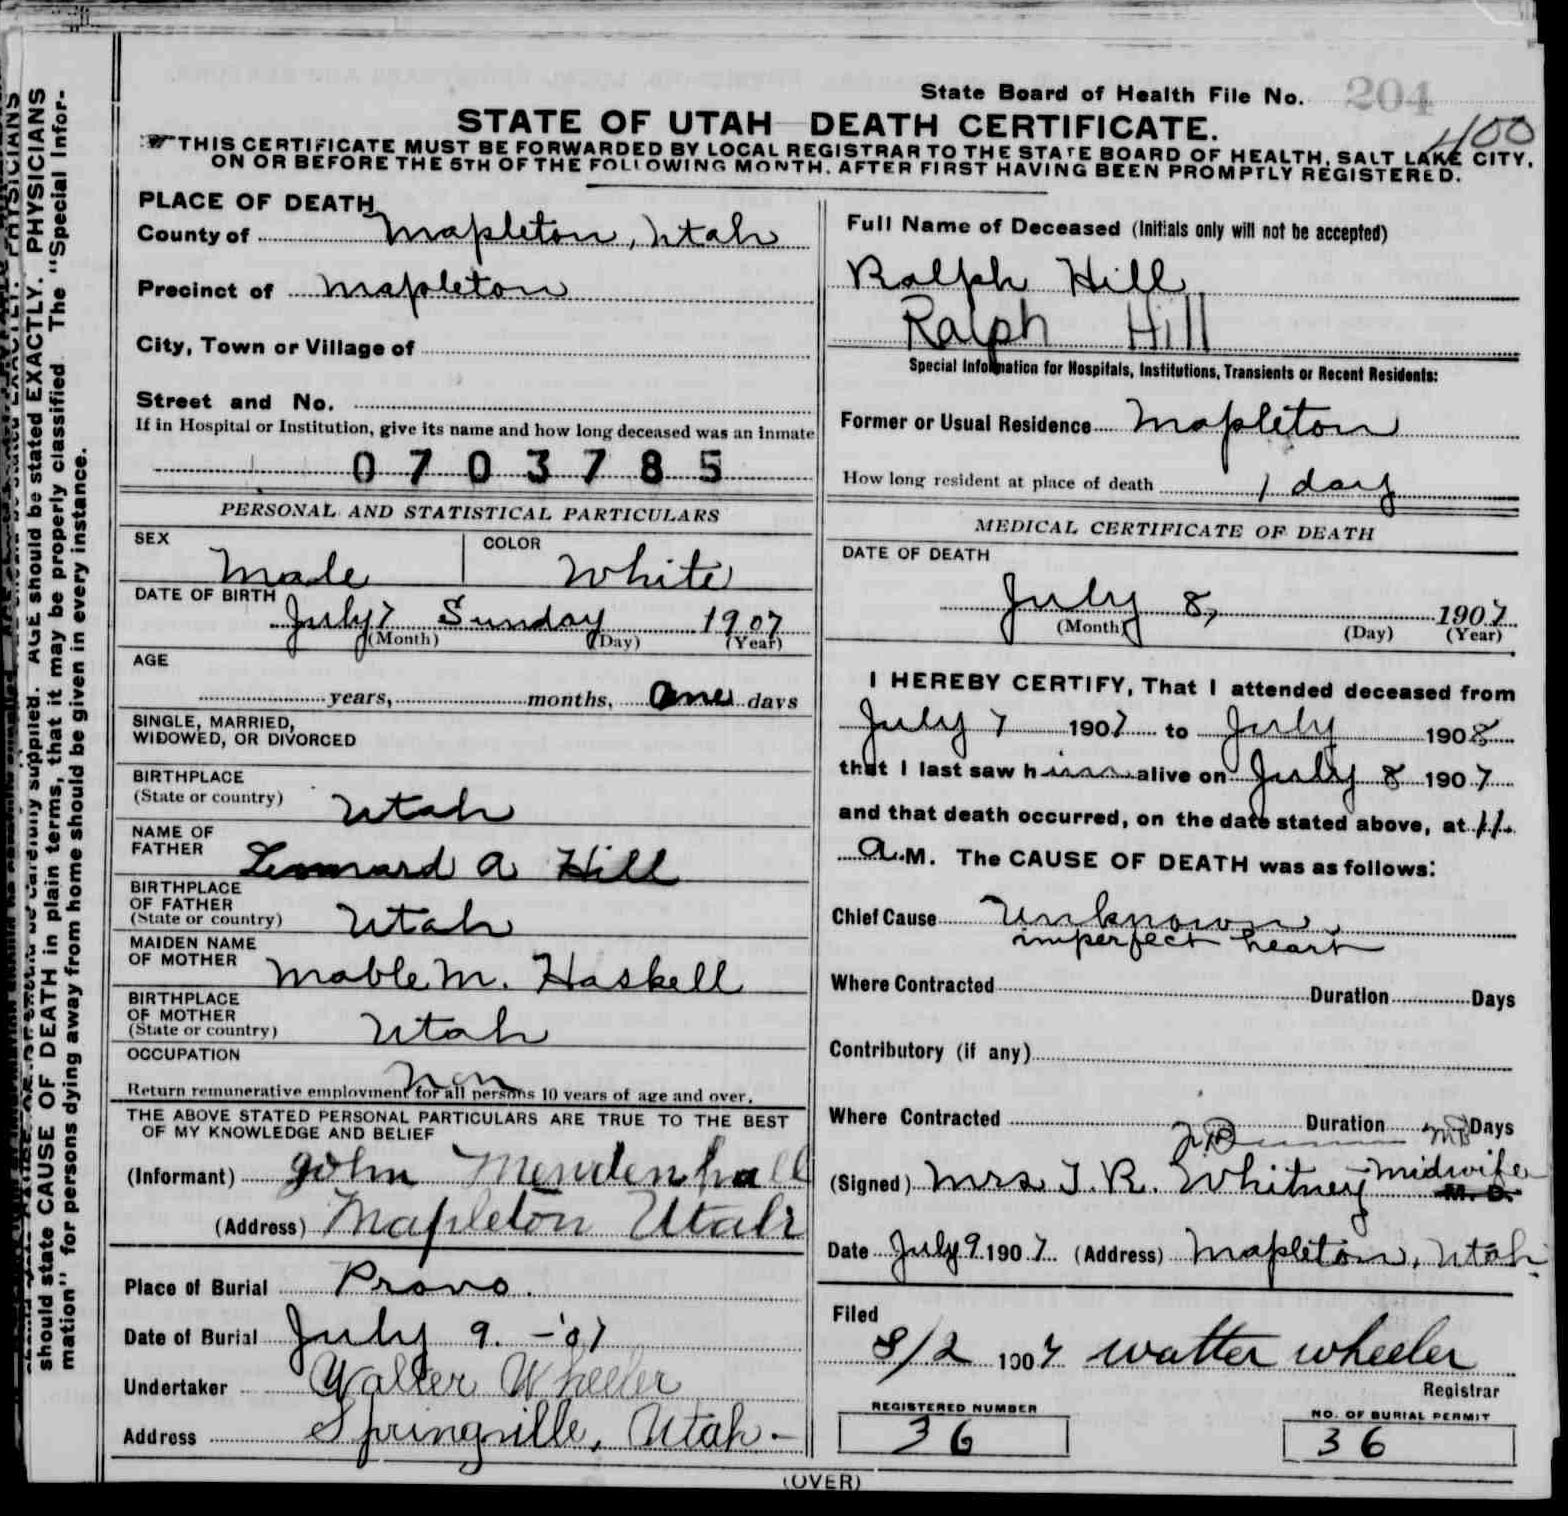 State Board of Health File No. 204
400
STATE OF UTAH DEATH CERTIFICATE.
THIS CERTIFICATE MUST BE FORWARDED BY LOCAL REGISTRAR TO THE STATE BOARD OF HEALTH, SALT LAKE CITY,
ON OR BEFORE THE 5TH OF THE FOLLOWING MONTH, AFTER FIRST HAVING BEEN PROMPTLY REGISTERED.
should state CAUSE OF DEATH in plain terms, that it may be properly classified. The "Special Infor-
mation" for persons dying away from home should be given in every instance.
AGE should be stated EXACTLY. PHYSICIANS
PLACE OF DEATH
County of Mapleton, Utah
Precinct of Mapleton
City, Town or Village of
Street and No.
If in Hospital or Institution, give its name and how long deceased was an inmate
0703785
PERSONAL AND STATISTICAL PARTICULARS
SEX Male COLOR White
DATE OF BIRTH
July 7 Sunday 1907
(Month) (Day) (Year)
AGE
years, months, One days
SINGLE, MARRIED,
WIDOWED, OR DIVORCED
BIRTHPLACE
(State or country) Utah
NAME OF
FATHER Leonard A Hill
BIRTHPLACE
OF FATHER
(State or country) Utah
MAIDEN NAME
OF MOTHER Mable M. Haskell
BIRTHPLACE
OF MOTHER
(State or country) Utah
OCCUPATION
Non
Return remunerative employment for all persons 10 years of age and over.
THE ABOVE STATED PERSONAL PARTICULARS ARE TRUE TO THE BEST
OF MY KNOWLEDGE AND BELIEF
(Informant) John Mendenhall
(Address) Mapleton Utah
Place of Burial Provo.
Date of Burial July 9. - '07
Undertaker Walter Wheeler
Address Springville, Utah.
Full Name of Deceased (Initials only will not be accepted)
Ralph Hill
Ralph Hill
Special Information for Hospitals, Institutions, Transients or Recent Residents:
Former or Usual Residence Mapleton
How long resident at place of death 1 day
MEDICAL CERTIFICATE OF DEATH
DATE OF DEATH
July 8, 1907
(Month) (Day) (Year)
I HEREBY CERTIFY, That I attended deceased from
July 7 1907 to July 1908
that I last saw him alive on July 8 1907
and that death occurred, on the date stated above, at 11.
A.M. The CAUSE OF DEATH was as follows:
Chief Cause Unknown,
imperfect heart
Where Contracted Duration Days
Contributory (if any)
Where Contracted Duration Days
(Signed) Mrs J. R. Whitney Midwife M. D.
Date July 9. 1907. (Address) Mapleton, Utah.
Filed
8/2 1907 Walter Wheeler
Registrar
REGISTERED NUMBER
36
NO. OF BURIAL PERMIT
36
(OVER)